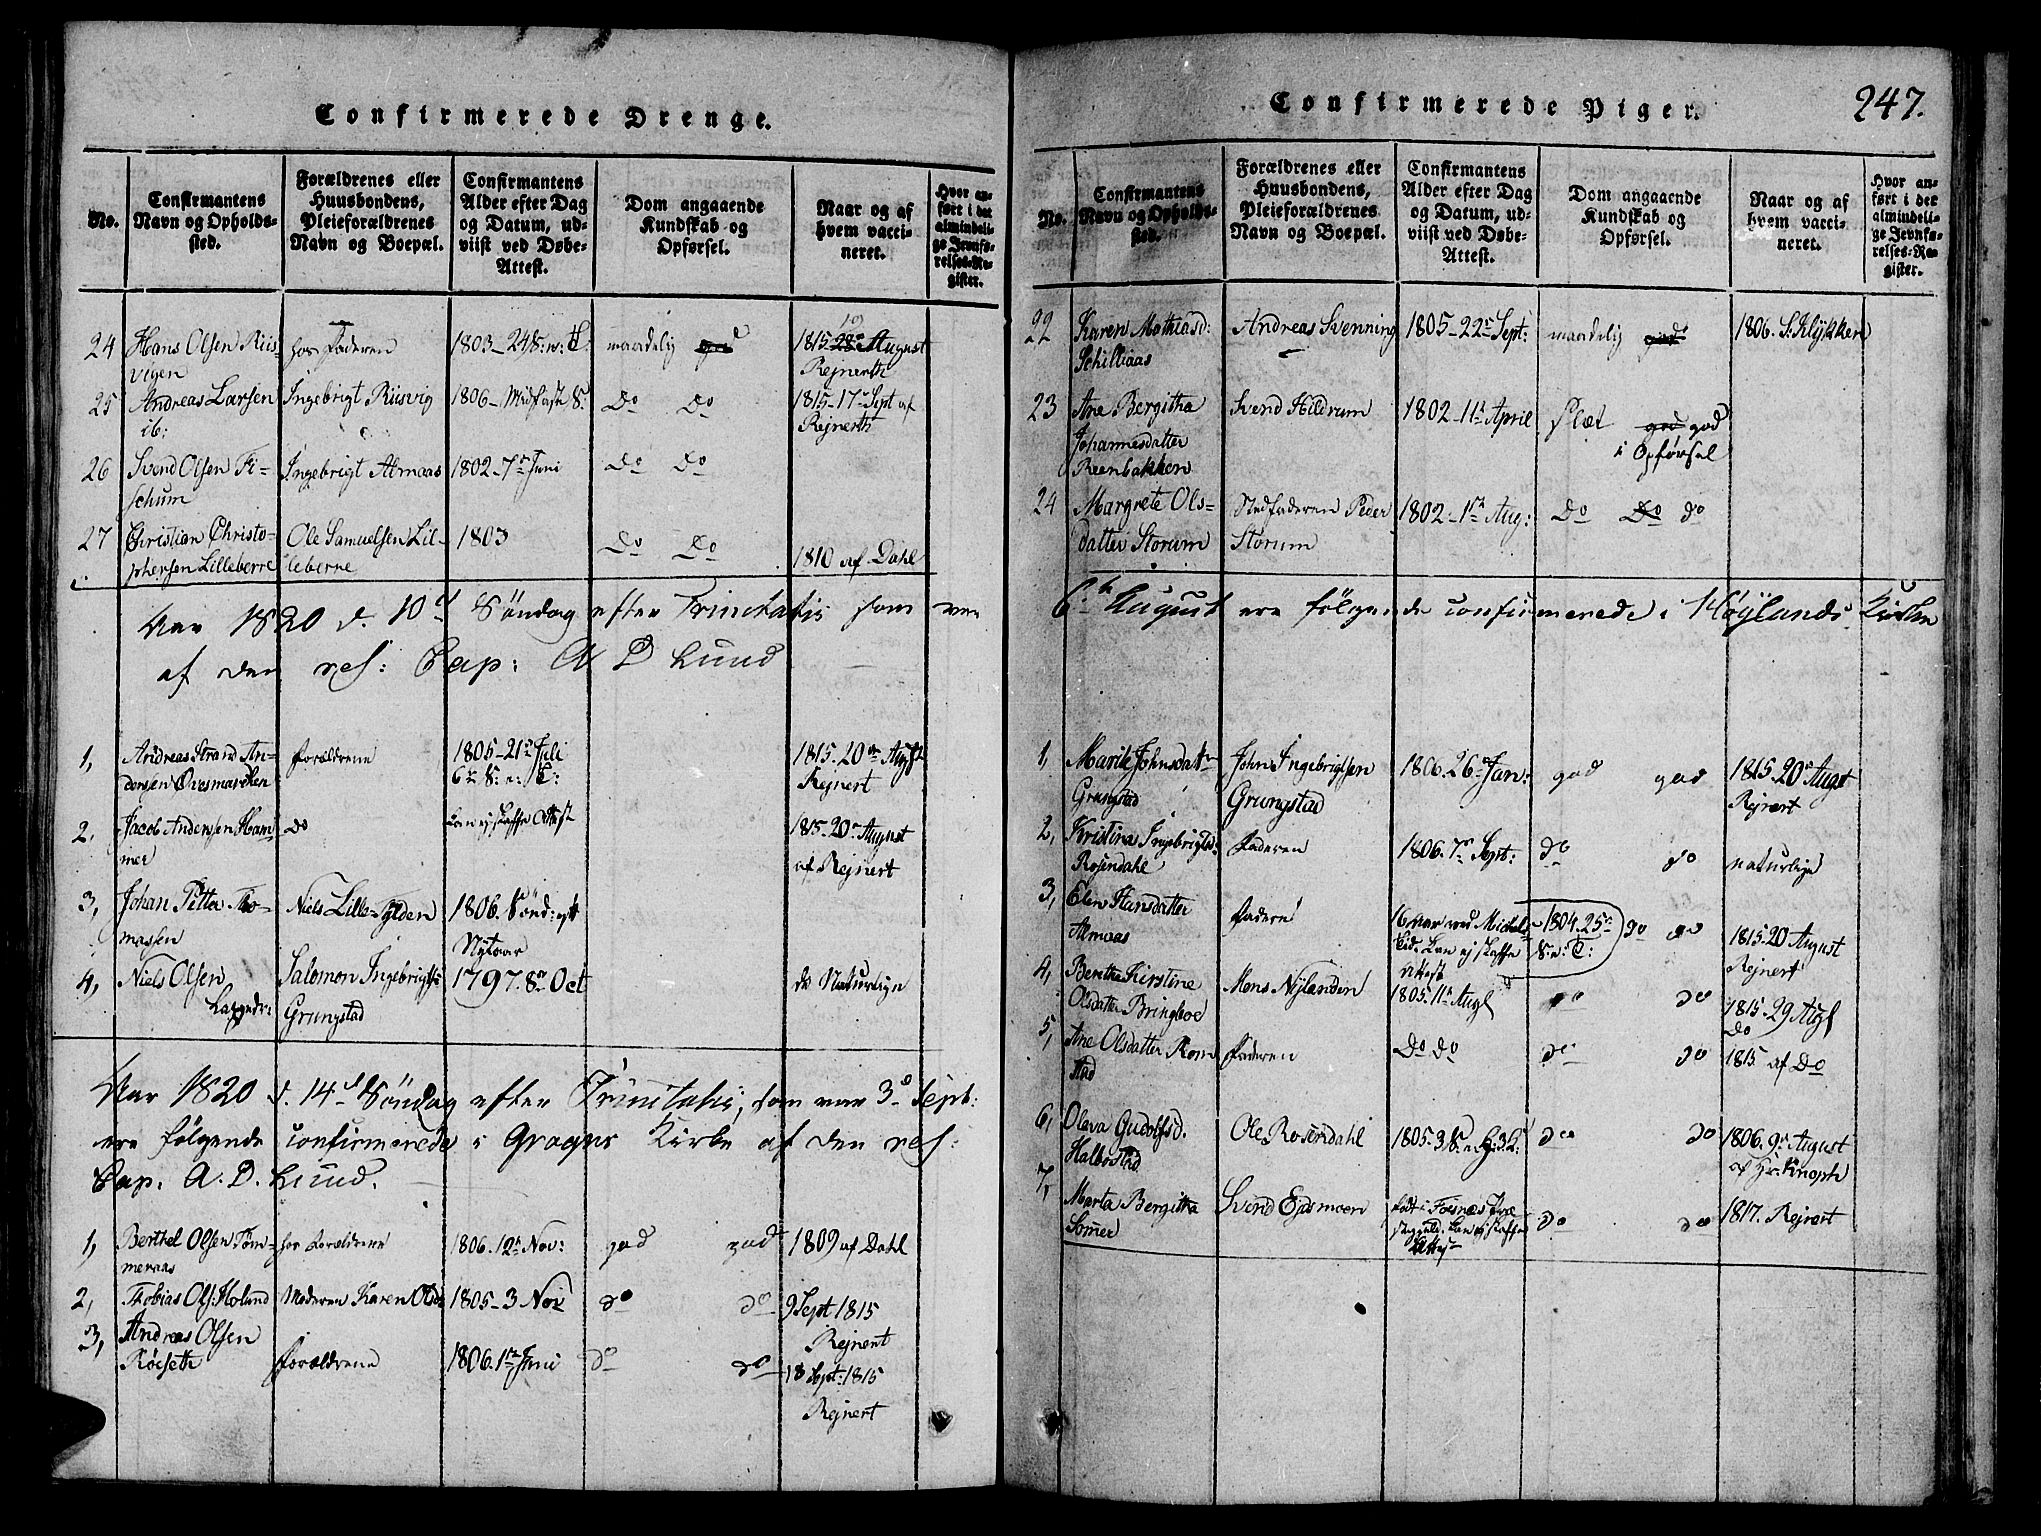 Confirmerede Drenge.
No.
Confirmantens
Navn og Opholds-
sted.
Forældrenes eller
Huusbondens,
Pleieforældrenes
Navn og Boepæl.
Confirmantens
Alder efter Dag
og Datum, ud-
viist ved Døbe-
Attest.
Dom angaaende
Kundskab og
Opførsel.
Naar og af
hvem vacci-
neret.
Hvor an-
ført i det
almindeli-
ge Jevnfø-
relses-Re-
gister.
24 Hans Olsen Riis-
vigen
hos Faderen
1803 - 24 S: n: T.
maadelig god
1815 August
Rejnerth
25 Andreas Larsen
ib:
Ingebrigt Riisvig
1806 - Midfaste S.
Do Do
1815 - 17 Sept af
Rejnerth
26 Svend Olsen Fi-
schum
Ingebrigt Almaas
1802 - 7de Juni
Do Do
27 Christian Christo-
phersen Lilleberre
Ole Samuelsen Lil-
leberre
1803
Do Do
1810 af Dahl
Aar 1820 d. 10d Søndag efter Trinitatis som var
af den res: Cap: A D Lund
1, Andreas Strand An-
dersen Overmarken
Forældrene
1805 - 21 Juli
6te S: e: T:
1815. 20de Augst
Rejnert
2, Jacob Andersen Ham-
mer
Do
kan ej skaffe Attest
1815 - 20 August
af Rejnert
3, Johan Petter Tho-
massen
Niels Lille-Ølden
1806. Sönd: eft
Nytaar
4, Niels Olsen
Salomon Ingebrigts
Grungstad
1797. 8de Oct
Naturlign
Aar 1820 d. 14d Söndag efter Trinitatis, som var 3d Sept:
ere følgende confirmerede i Grognes Kirke af den res:
Cap. A. D. Lund.
1, Berthel Olsen Töm-
meraas
hos Forældrene
1806. 12te Nov:
god god
1809 af Dahl
2, Tobias Ols: Holand
Moderen Karen Olsd:
1805 - 3 Nov
do do
9 Sept 1815
Rejnert
3, Andreas Olsen
Röiseth
Forældrene
1806. 1ste Juni
do do
18 Sept: 1815
Rejnert
Confirmerede Piger.
247.
No.
Confirmantens
Navn og Opholds-
sted.
Forældrenes eller
Huusbondens,
Pleieforældrenes
Navn og Boepæl.
Confirmantens
Alder efter Dag
og Datum, ud-
viist ved Døbe-
Attest.
Dom angaaende
Kundskab og
Opførsel.
Naar og af
hvem vacci-
neret.
Hvor an-
ført i det
almindeli-
ge Jevnfø-
relses-Re-
gister.
22 Karen Mathiasd:
Schilliaas
Andreas Svenning
1805 - 22 Sept:
maadelig god
1806. S. Klykken
23 Ane Bergitha
Johannesdatter
Reenbakken
Svend Hildrum
1802 - 11te April
slet god god
i Opførsel
24 Margrete Ols-
datter Storum
Stedfaderen Peder
Storum
1802 - 1ste Aug:
Do Do do
6te August ere følgende confirmerede i Höylands Kirke
1, Marit Johnsdatr
Grungstad
John Ingebrigtsen
Grungstad
1806. 26 Jan:
god god
1815. 20 Augst
Rejnert
2, Kristina Ingebrigtsd:
Rosendahl
Faderen
1806. 7de Sept:
do do
naturlige
3, Elen Hansdatter
Almaas
Faderen
16 Aar ved Michels
Tid. kan ej skaffe
Attest
1804. 25
S. e: T:
do do
1815. 20 August
Rejnert
4, Bertha Kirstine
Olsdatter Bringboe
Mons Nylanden
1805. 11te Augt
do do
1815 - 29 Augt
Do
5, Ane Olsdatter Rom-
stad
Faderen
Do do
do do
1815 af Do
6, Olava Gudolfsd.
Halbostad
Ole Rosendahl
1805. 3 S. e. H: 3 K:
do do
1806. 9de August
af Hr: Knoph
7, Marta Bergitha
Sømer
Svend Ejdsmoen
født i Fosnæs Præ-
stegield. kan ej skaffe
Attest
do do
1817. Rejnert